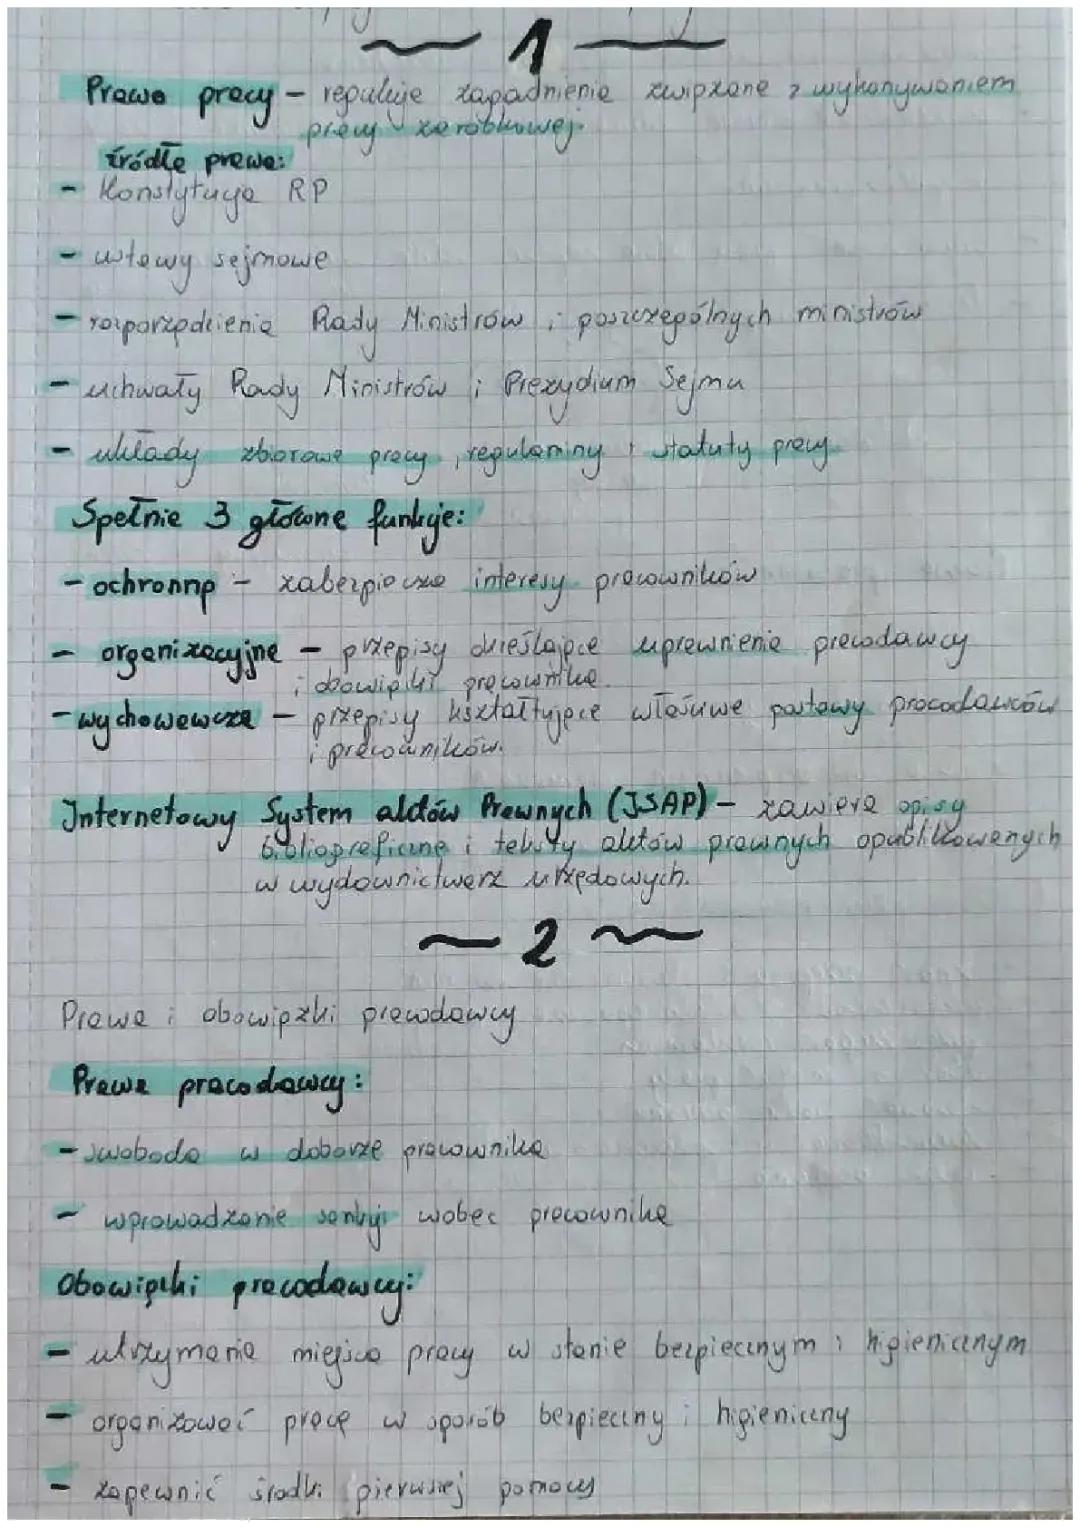 ~ 1 ~
Prawo pracy – reguluje zagadnienia związane z wykonywaniem
pracy zarobkowej.
źródła prawa:
- Konstytucja RP
- ustawy sejmowe
- rozporządzienia Rady Ministrów i poszczególnych ministrów
- uchwały Rady Ministrów i Prezydium Sejmu
- układy zbiorowe pracy, regulaminy i statuty pracy
Spełnia 3 główne funkcje:
- ochronną – zabezpiecza interesy pracowników
- organizacyjną – przepisy określające uprawnienia pracodawcy
i obowiązki pracownika.
- wychowawczą – przepisy kształtujące właściwe postawy pracodawców
i pracowników.
Internetowy System aktów Prawnych (ISAP) – zawiera opisy
bibliograficzne i teksty aktów prawnych opublikowanych
w wydawnictwach urzędowych.
~ 2 ~
Prawa i obowiązki pracodawcy
Prawa pracodawcy:
- swoboda w doborze pracownika
- wprowadzanie sankcji wobec pracownika
Obowiązki pracodawcy:
- utrzymania miejsca pracy w stanie bezpiecznym i higienicznym
- organizować pracę w sposób bezpieczny i higieniczny
- zapewnić środki pierwszej pomocy